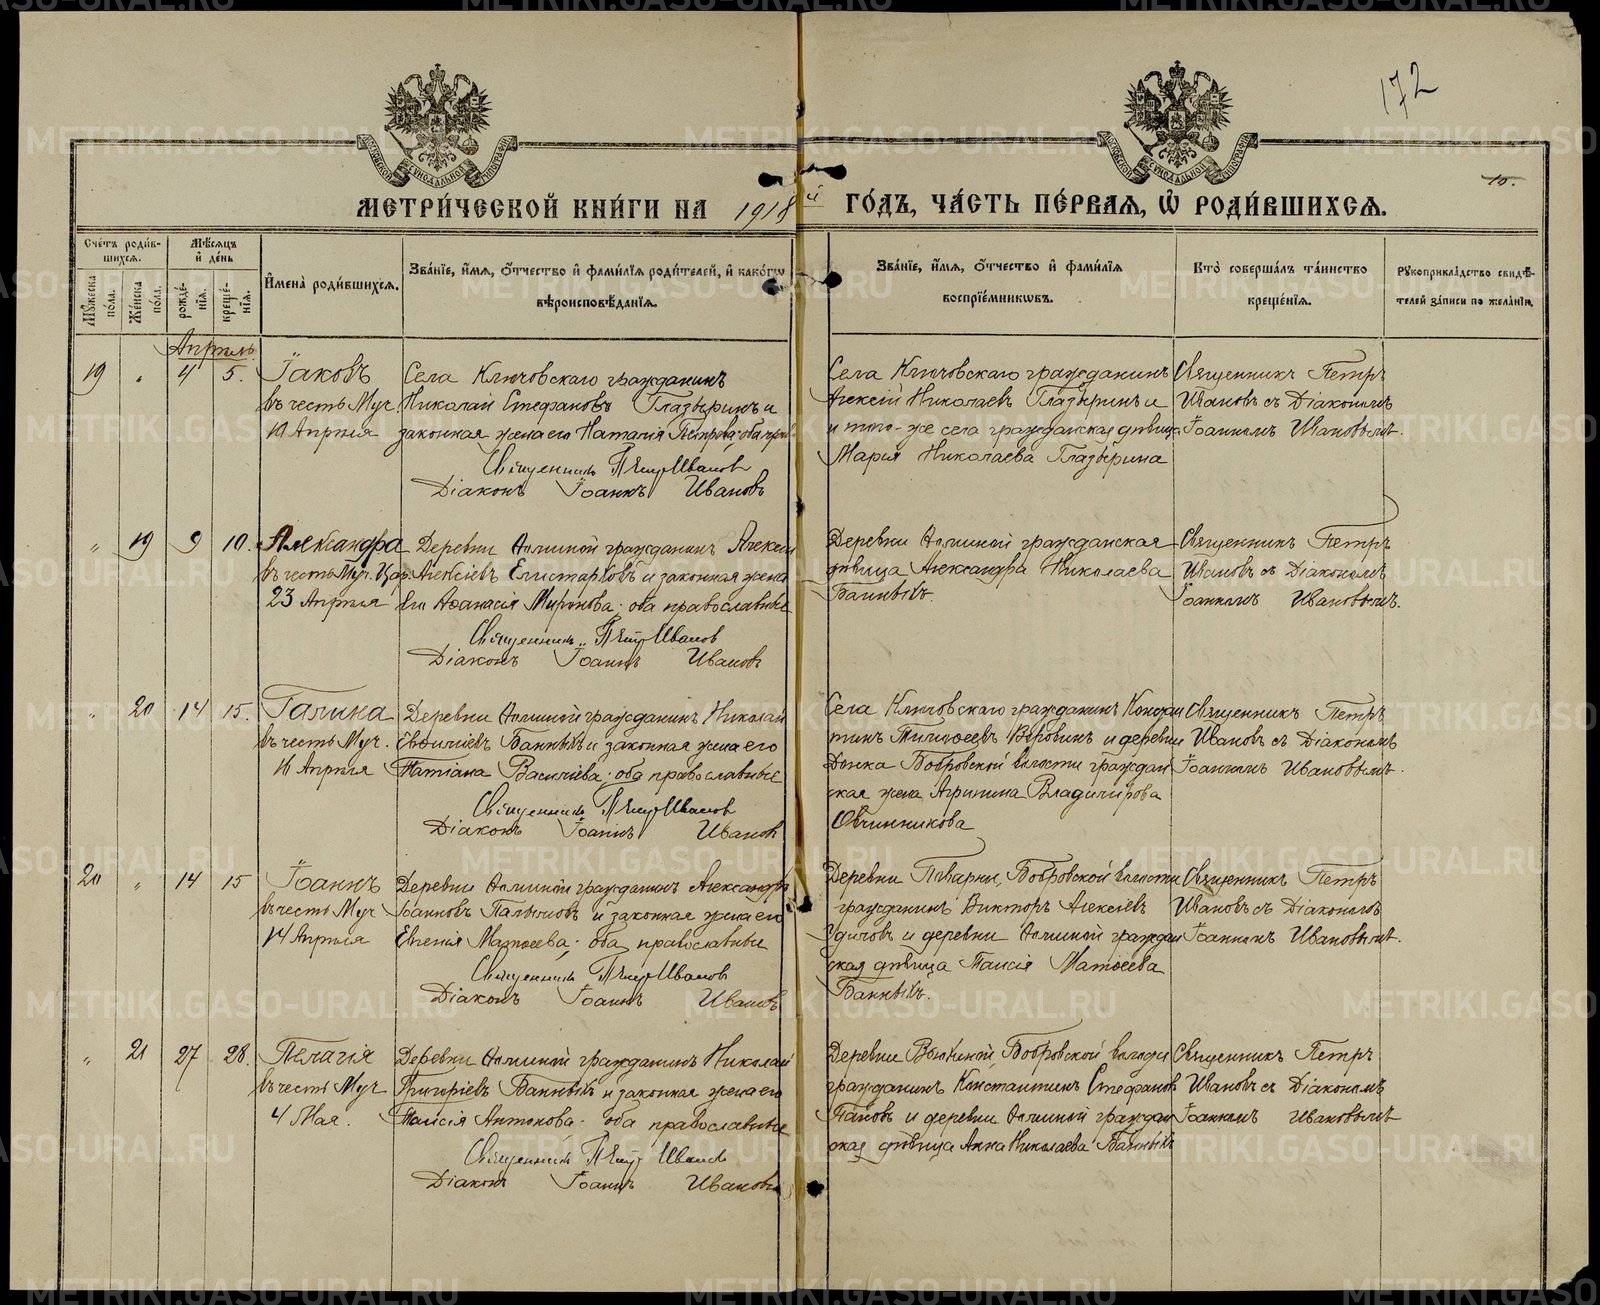 172
15.
МЕТРИ́ЧЕСКОЙ КНИ́ГИ НА 1918 й ГО́ДЪ, ЧА́СТЬ ПЕ́РВАЯ, Ѡ҆ РОДИ́ВШИХСЯ.
Сче́тъ роди́вшихся.
Му́жеска пола.
Же́нска по́ла.
Мѣ́сяцъ и҆ де́нь
рожде́нїя.
креще́нїя.
И҆мена̀ роди́вшихся.
Зва́нїе, и҆́мя, ѻ҆́тчество и҆ фами́лїя роди́телей, и҆ како́гѡ
вѣроисповѣ́данїя.
Зва́нїе, и҆́мя, ѻ҆́тчество и҆ фами́лїя
воспрїе́мникѡвъ.
Кто̀ соверша́лъ та́инство
креще́нїя.
Рꙋкоприкла́дство свидѣ́телей за́писи по жела́нїю.
Апрѣль
19 " 4 5.
Іаковъ
въ честь Муч.
Апрѣля
Села Ключовскаго гражданинъ
Николай Стефановъ Глазыринъ и
законная жена его Наталія Петрова; оба прав.
Священникъ Петръ Ивановъ
Діаконъ Іоаннъ Ивановъ
Села Ключовскаго гражданинъ
Алексій Николаевъ Глазыринъ и
и того-же села гражданская дѣвица
Марія Николаева Глазырина
Священникъ Петръ
Ивановъ съ Діакономъ
Іоанномъ Ивановымъ.
" 19 9 10.
Александра
въ честь Муч. Цар.
23 Апрѣля
Деревни гражданинъ Алексій
Алексіевъ Елистарховъ и законная жена
его Аѳанасія Миронова; оба православные
Священникъ Петръ Ивановъ
Діаконъ Іоаннъ Ивановъ
Деревни гражданская
дѣвица Александра Николаева
Банныхъ.
Священникъ Петръ
Ивановъ съ Діакономъ
Іоанномъ Ивановымъ.
" 20 14 15.
Галина
въ честь Муч.
16 Апрѣля
Деревни гражданинъ Николай
Евѳиміевъ Банныхъ и законная жена его
Татіана Василіева; оба православные
Священникъ Петръ Ивановъ
Діаконъ Іоаннъ Ивановъ
Села Ключовскаго гражданинъ Констан
тинъ Тимоѳеевъ Боровинъ и деревни
Бобровской волости граждан
ская жена Агрипина Владимірова
Овчинникова
Священникъ Петръ
Ивановъ съ Діакономъ
Іоанномъ Ивановымъ.
20 " 14 15
Іоаннъ
въ честь Муч
14 Апрѣля
Деревни гражданинъ Александръ
Іоанновъ и законная жена его
Евгенія Матѳеева; оба православные
Священникъ Петръ Ивановъ
Діаконъ Іоаннъ Ивановъ
Деревни Бобровской волости
гражданинъ Викторъ Алексіевъ
и деревни граждан
ская дѣвица Таисія Матѳеева
Банныхъ.
Священникъ Петръ
Ивановъ съ Діакономъ
Іоанномъ Ивановымъ.
" 21 27 28.
Пелагія
въ честь Муч
4 Мая.
Деревни гражданинъ Николай
Григоріевъ Банныхъ и законная жена его
Таисія Антонова; оба православные
Священникъ Петръ Ивановъ
Діаконъ Іоаннъ Ивановъ
Деревни Бобровской волости
гражданинъ Константинъ Стефановъ
и деревни граждан
ская дѣвица Анна Николаева Банныхъ
Священникъ Петръ
Ивановъ съ Діакономъ
Іоанномъ Ивановымъ
METRIKI.GASO-URAL.RU